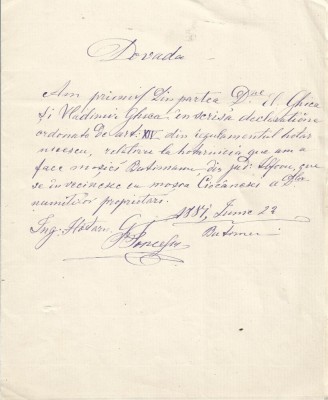 Dovada
Am primit din partea D-lor I. Ghica
și Vladimir Ghica înscrisa declarațiune
ordonată de art. XIV din regulamentul hotar
nicesc, relativă la hotărnicia que am a
face moșiei Butimanu din jud: Ilfov, que
se învecinesce cu moșia Ciocănesci a D-lor
numiților proprietari.
1881, Iunie 22
Ing: Hotarn. G. P. Poncescu